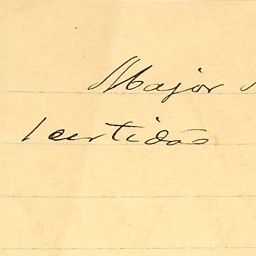 Major
1 certidão